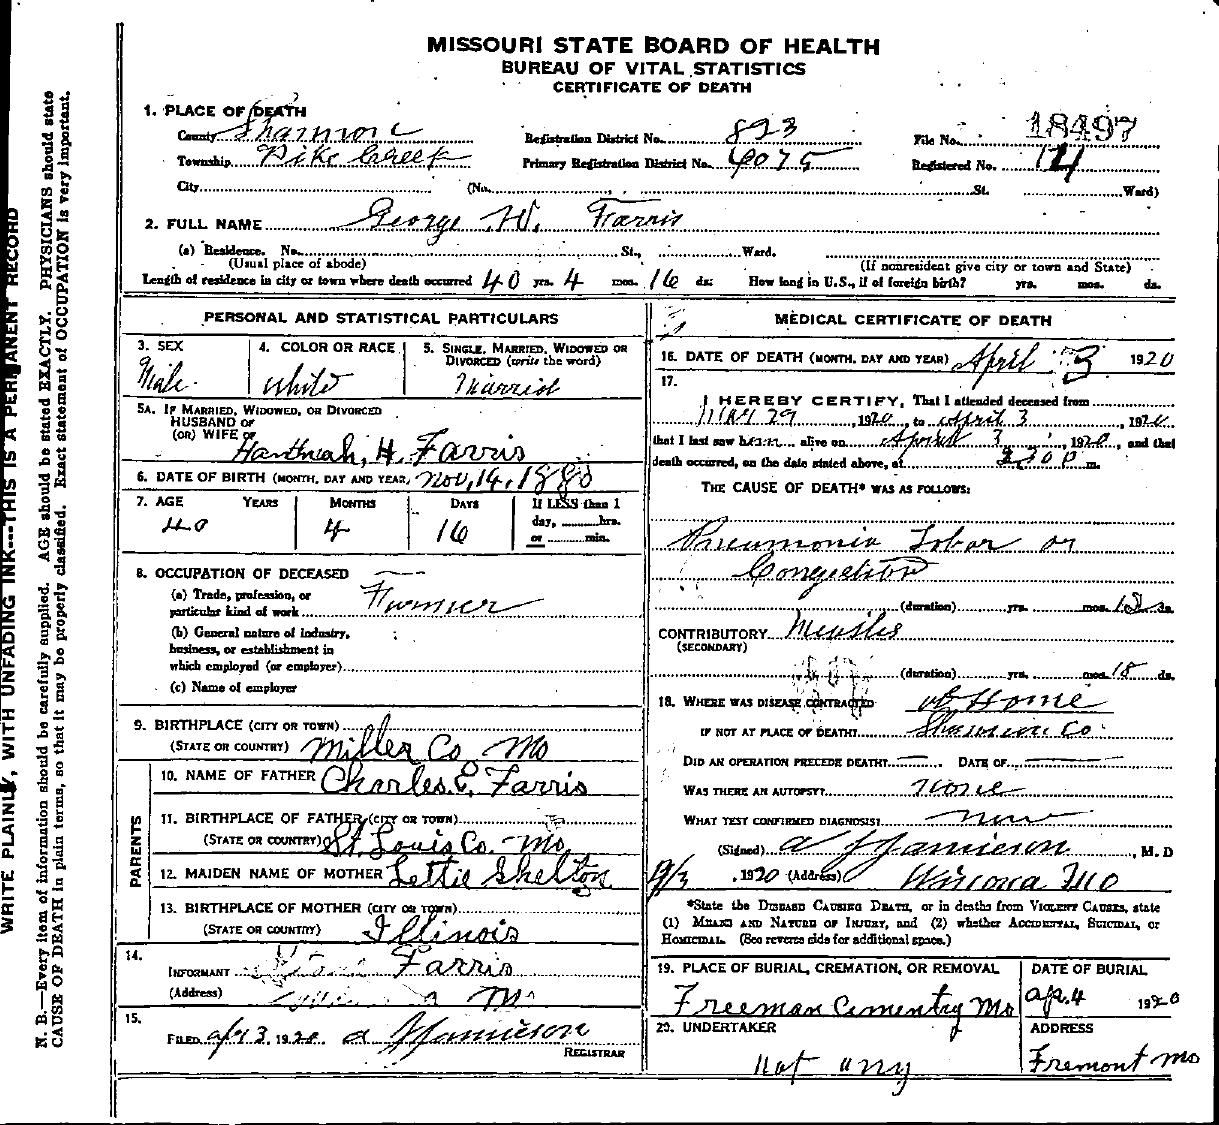 MISSOURI STATE BOARD OF HEALTH
BUREAU OF VITAL STATISTICS
CERTIFICATE OF DEATH
1. PLACE OF DEATH
County Shannon Registration District No. 893 File No. 18497
Township Pike Creek Primary Registration District No. 6075 Registered No. 14
City (No. St. Ward)
2. FULL NAME George W. Farris
(a) Residence. No. St., Ward.
(Usual place of abode) (If nonresident give city or town and State)
Length of residence in city or town where death occurred 40 yrs. 4 mos. 16 ds. How long in U.S., if of foreign birth? yrs. mos. ds.
PERSONAL AND STATISTICAL PARTICULARS
3. SEX 4. COLOR OR RACE 5. SINGLE, MARRIED, WIDOWED OR
DIVORCED (write the word)
Male White Married
5A. IF MARRIED, WIDOWED, OR DIVORCED
HUSBAND OF
(OR) WIFE OF
H. Farris
6. DATE OF BIRTH (MONTH, DAY AND YEAR) Nov, 14, 1880
7. AGE YEARS MONTHS DAYS If LESS than 1
day, hrs.
or min.
40 4 16
8. OCCUPATION OF DECEASED
(a) Trade, profession, or
particular kind of work Farmer
(b) General nature of industry,
business, or establishment in
which employed (or employer)
(c) Name of employer
9. BIRTHPLACE (CITY OR TOWN)
(STATE OR COUNTRY) Miller Co Mo
PARENTS
10. NAME OF FATHER Charles E. Farris
11. BIRTHPLACE OF FATHER (CITY OR TOWN)
(STATE OR COUNTRY) St. Louis Co. Mo.
12. MAIDEN NAME OF MOTHER Lettie Shelton
13. BIRTHPLACE OF MOTHER (CITY OR TOWN)
(STATE OR COUNTRY) Illinois
14.
INFORMANT Farris
(Address) Mo
15.
FILED apr 3, 1920. a J Jamieson
REGISTRAR
MEDICAL CERTIFICATE OF DEATH
16. DATE OF DEATH (MONTH, DAY AND YEAR) April 3 1920
17.
I HEREBY CERTIFY, That I attended deceased from
Mar 29, 1920, to April 3, 1920
that I last saw him alive on April 3, 1920, and that
death occurred, on the date stated above, at 230 P m.
THE CAUSE OF DEATH* WAS AS FOLLOWS:
Pneumonia Lobar or
Congestion
(duration) yrs. mos. ds.
CONTRIBUTORY Measles
(SECONDARY)
(duration) yrs. mos. 18 ds.
18. WHERE WAS DISEASE CONTRACTED at Home
IF NOT AT PLACE OF DEATH? Shannon Co.
DID AN OPERATION PRECEDE DEATH? DATE OF
WAS THERE AN AUTOPSY? none
WHAT TEST CONFIRMED DIAGNOSIS?
(Signed) a J Jamieson, M. D
4/3, 1920 (Address) Winona Mo
*State the DISEASE CAUSING DEATH, or in deaths from VIOLENT CAUSES, state
(1) MEANS AND NATURE OF INJURY, and (2) whether ACCIDENTAL, SUICIDAL, or
HOMICIDAL. (See reverse side for additional space.)
19. PLACE OF BURIAL, CREMATION, OR REMOVAL DATE OF BURIAL
Freeman Cementry Mo apr. 4 1920
20. UNDERTAKER ADDRESS
not any Fremont Mo
WRITE PLAINLY, WITH UNFADING INK---THIS IS A PERMANENT RECORD
N. B.—Every item of information should be carefully supplied. AGE should be stated EXACTLY. PHYSICIANS should state
CAUSE OF DEATH in plain terms, so that it may be properly classified. Exact statement of OCCUPATION is very important.